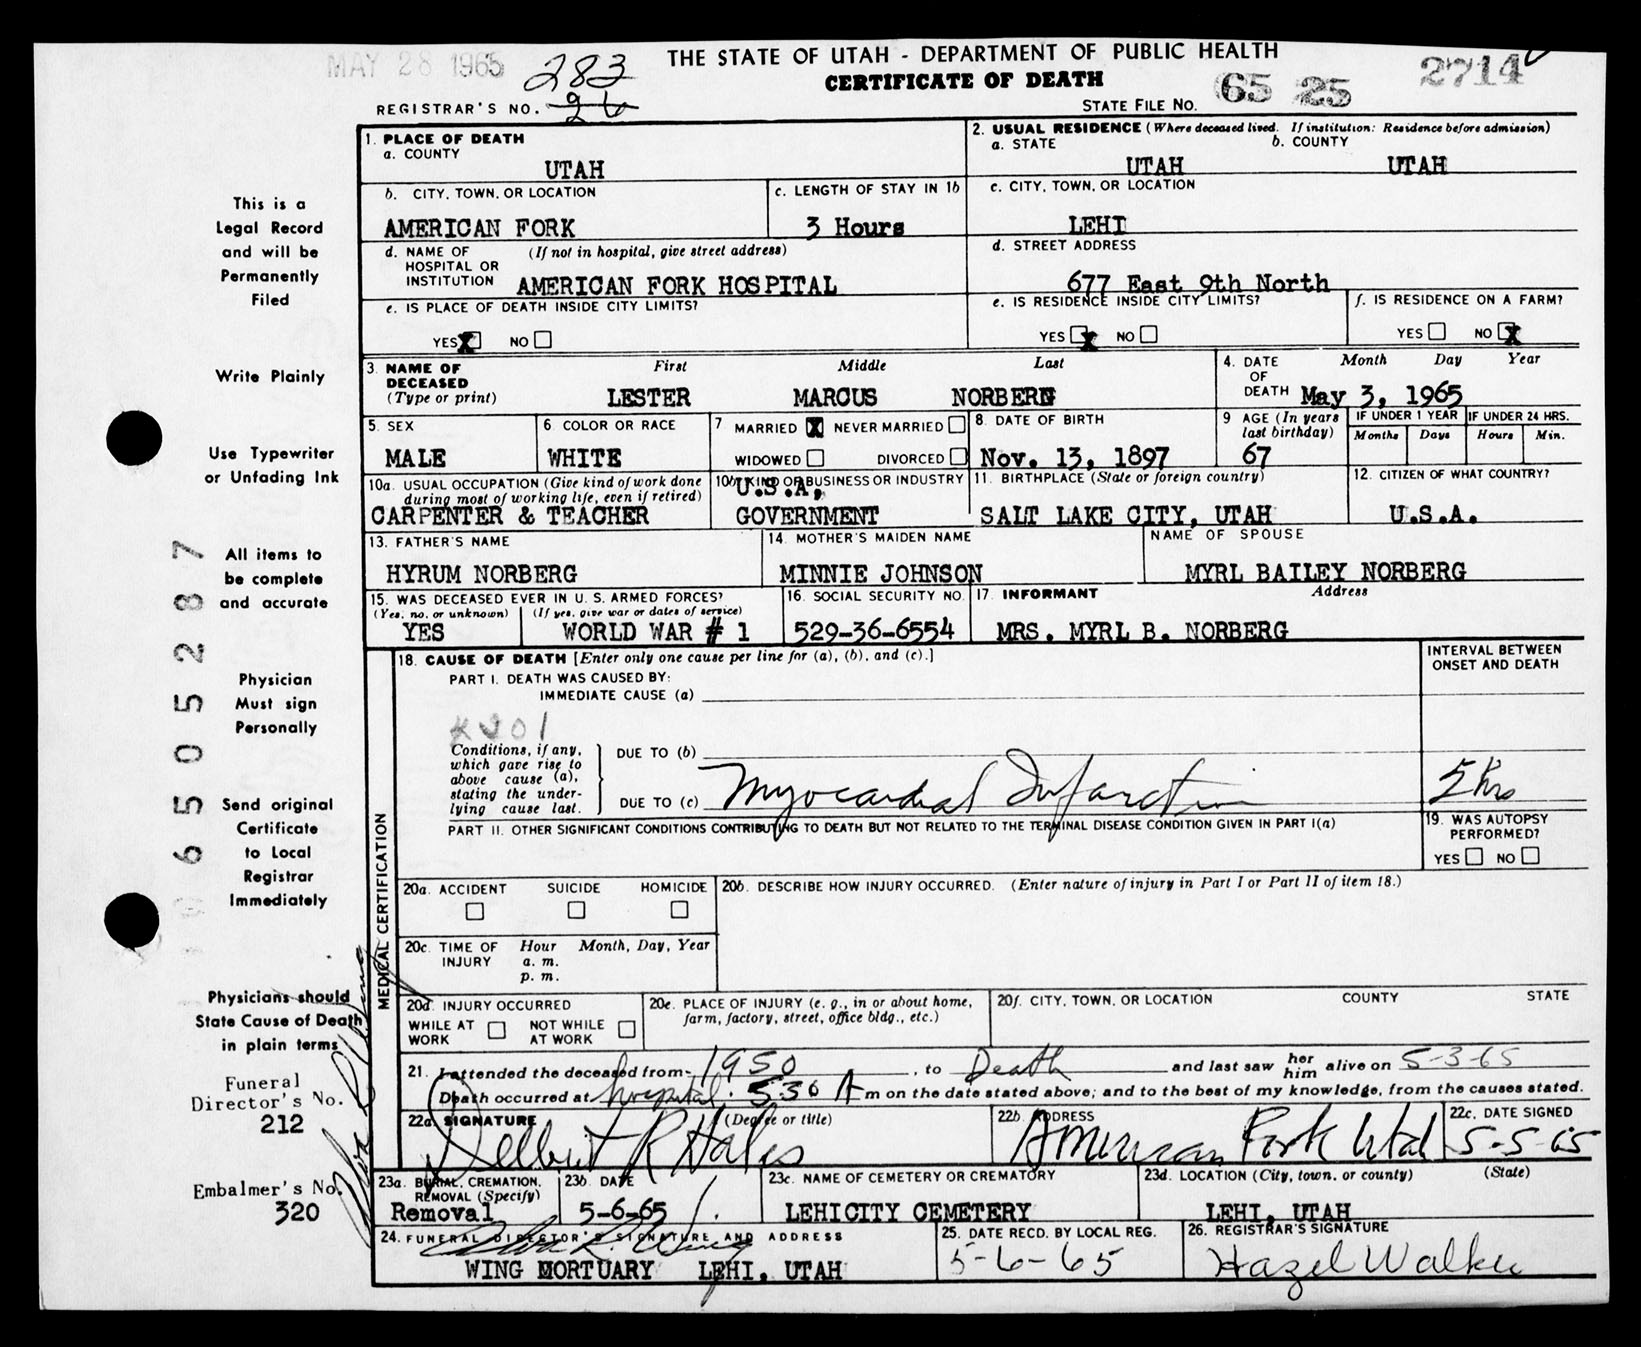 THE STATE OF UTAH - DEPARTMENT OF PUBLIC HEALTH
MAY 28 1965
283
CERTIFICATE OF DEATH
65 25 2714
REGISTRAR'S NO. 26
STATE FILE NO.
1. PLACE OF DEATH
a. COUNTY
UTAH
2. USUAL RESIDENCE (Where deceased lived. If institution: Residence before admission)
a. STATE b. COUNTY
UTAH UTAH
b. CITY, TOWN, OR LOCATION
AMERICAN FORK
c. LENGTH OF STAY IN 1b
3 Hours
c. CITY, TOWN, OR LOCATION
LEHI
d. NAME OF (If not in hospital, give street address)
HOSPITAL OR
INSTITUTION AMERICAN FORK HOSPITAL
d. STREET ADDRESS
677 East 9th North
e. IS PLACE OF DEATH INSIDE CITY LIMITS?
YES X NO
e. IS RESIDENCE INSIDE CITY LIMITS?
YES X NO
f. IS RESIDENCE ON A FARM?
YES NO X
3. NAME OF First Middle Last
DECEASED
(Type or print) LESTER MARCUS NORBERG
4. DATE Month Day Year
OF
DEATH May 3, 1965
5. SEX
MALE
6. COLOR OR RACE
WHITE
7 MARRIED X NEVER MARRIED
WIDOWED DIVORCED
8. DATE OF BIRTH
Nov. 13, 1897
9 AGE (In years
last birthday)
67
IF UNDER 1 YEAR
Months Days
IF UNDER 24 HRS.
Hours Min.
10a. USUAL OCCUPATION (Give kind of work done
during most of working life, even if retired)
CARPENTER & TEACHER
10b. KIND OF BUSINESS OR INDUSTRY
U.S.A,
GOVERNMENT
11. BIRTHPLACE (State or foreign country)
SALT LAKE CITY, UTAH
12. CITIZEN OF WHAT COUNTRY?
U.S.A.
13. FATHER'S NAME
HYRUM NORBERG
14. MOTHER'S MAIDEN NAME
MINNIE JOHNSON
NAME OF SPOUSE
MYRL BAILEY NORBERG
15. WAS DECEASED EVER IN U. S. ARMED FORCES?
(Yes, no, or unknown) (If yes, give war or dates of service)
YES WORLD WAR # 1
16. SOCIAL SECURITY NO.
529-36-6554
17. INFORMANT Address
MRS. MYRL B. NORBERG
MEDICAL CERTIFICATION
18. CAUSE OF DEATH [Enter only one cause per line for (a), (b), and (c).]
PART I. DEATH WAS CAUSED BY:
IMMEDIATE CAUSE (a)
INTERVAL BETWEEN
ONSET AND DEATH
4201
Conditions, if any,
which gave rise to
above cause (a),
stating the under-
lying cause last.
DUE TO (b)
DUE TO (c) Myocardial Infarction
5 hrs
PART II. OTHER SIGNIFICANT CONDITIONS CONTRIBUTING TO DEATH BUT NOT RELATED TO THE TERMINAL DISEASE CONDITION GIVEN IN PART I(a)
19. WAS AUTOPSY
PERFORMED?
YES NO
20a. ACCIDENT SUICIDE HOMICIDE
20b. DESCRIBE HOW INJURY OCCURRED. (Enter nature of injury in Part I or Part II of item 18.)
20c. TIME OF Hour Month, Day, Year
INJURY a. m.
p. m.
20d. INJURY OCCURRED
WHILE AT NOT WHILE
WORK AT WORK
20e. PLACE OF INJURY (e. g., in or about home,
farm, factory, street, office bldg., etc.)
20f. CITY, TOWN, OR LOCATION COUNTY STATE
21. I attended the deceased from 1950, to Death and last saw her him alive on 5-3-65
Death occurred at hospital. 530 A m on the date stated above; and to the best of my knowledge, from the causes stated.
22a. SIGNATURE (Degree or title)
Delbert R Hales
22b. ADDRESS
American Fork Utah
22c. DATE SIGNED
5-5-65
23a. BURIAL, CREMATION,
REMOVAL (Specify)
Removal
23b. DATE
5-6-65
23c. NAME OF CEMETERY OR CREMATORY
LEHICITY CEMETERY
23d. LOCATION (City, town, or county) (State)
LEHI, UTAH
24. FUNERAL DIRECTOR'S SIGNATURE AND ADDRESS
Alva R. Wing
WING MORTUARY LEHI, UTAH
25. DATE RECD. BY LOCAL REG.
5-6-65
26. REGISTRAR'S SIGNATURE
Hazel Walker
This is a
Legal Record
and will be
Permanently
Filed
Write Plainly
Use Typewriter
or Unfading Ink
All items to
be complete
and accurate
Physician
Must sign
Personally
Send original
Certificate
to Local
Registrar
Immediately
Physicians should
State Cause of Death
in plain terms
Funeral
Director's No.
212
Embalmer's No.
320